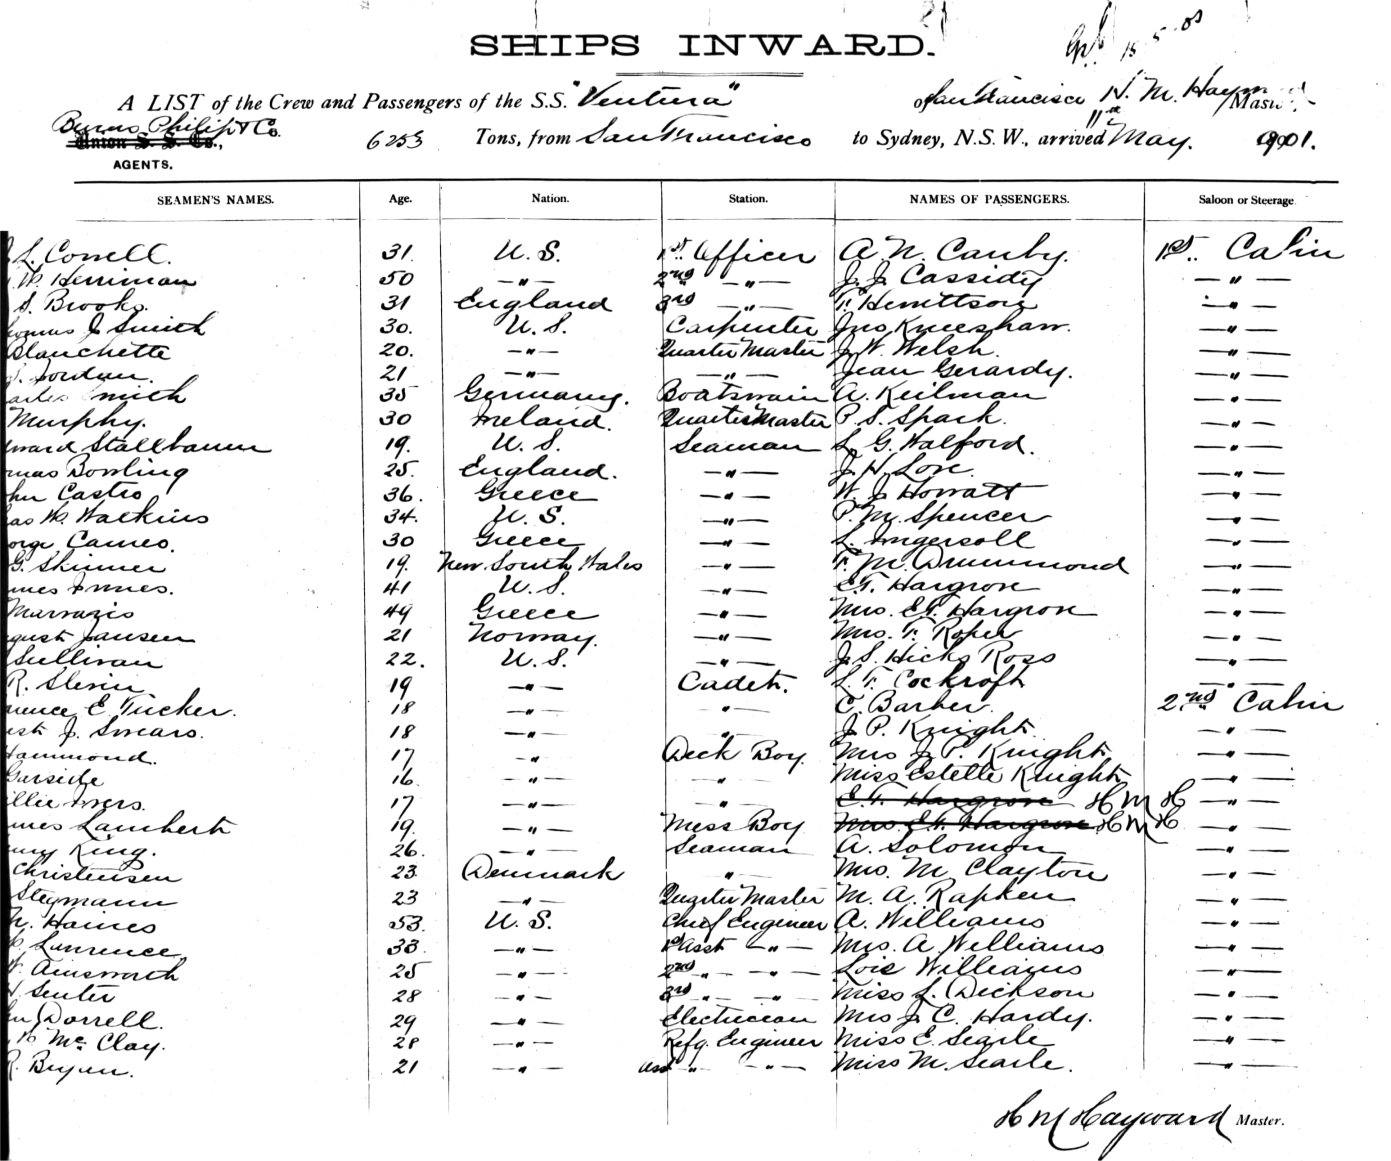 SHIPS INWARD.
15-5-01
A LIST of the Crew and Passengers of the S.S. "Ventura" of San Francisco H. M. Hayward Master,
Burns Philip & Co.
Union S. S. Co., 6253 Tons, from San Francisco to Sydney, N.S.W., arrived 11th May. 1901.
AGENTS.
SEAMEN'S NAMES. Age. Nation. Station. NAMES OF PASSENGERS. Saloon or Steerage
L. Correll. 31. U. S. 1st. Officer A. N. Canby. 1st. Cabin
W. Herriman 50 —"— 2nd —"— J. J. Cassidy —"—
S. Brooks. 31 England 3rd —"— F. Hewittson —"—
omas J Smith 30. U. S. Carpenter Jno Kneeshaw. —"—
Blanchette 20. —"— Quarter Master J. W. Welsh. —"—
Jordan. 21 —"— —"— Jean Gerardy. —"—
arles Smith 35 Germany. Boatswain A. Keilman —"—
Murphy. 30 Ireland. Quarter Master P. S. Spark. —"—
dward Stallbaum 19. U. S. Seaman L. G. Halford. —"—
omas Bowling 25. England. —"— J. H. Love. —"—
ohn Castro 36. Greece —"— W. J. Howatt —"—
has W. Watkins 34. U. S. —"— P. M. Spencer —"—
orge Cameo. 30 Greece —"— L. Ingersoll —"—
G. Skinner 19. New South Wales —"— F. M. Drummond —"—
ames Innes. 41 U. S. —"— E. F. Hargrove —"—
Marrazis 49 Greece —"— Mrs. E. F. Hargrove —"—
ugust Jansen 21 Norway. —"— Mrs. F. Roper —"—
Sullivan 22. U. S. —"— J. S. Hicks Ross —"—
R. Slevin 19 —"— Cadet. L. F. Cockroft —"—
arence E. Tucker. 18 —"— —"— C. Barber. 2nd Cabin
J. Swears. 18 —"— " J. P. Knight. —"—
Hammond. 17 —"— Deck Boy. Mrs J. P. Knight —"—
Garside 16. —"— " Miss Estelle Knight —"—
illie Myers. 17 —"— " E. F. Hargrove H M H —"—
ames Lambert 19. —"— Mess Boy Mrs. E. F. Hargrove H M H —"—
enry King. 26. —"— Seaman A. Solomon —"—
Christensen 23. Denmark " Mrs. M. Clayton —"—
Stegmann 23 —"— Quarter Master M. A. Rapken —"—
N. Haines 53. U. S. Chief Engineer A. Williams —"—
Lawrence 33. —"— 1st Asst —"— Mrs. A Williams —"—
Ainsworth 25 —"— 2nd " —"— Lois Williams —"—
H Senter 28 —"— 3rd " —"— Miss L. Dickson —"—
Dorrell. 29 —"— Electrician Mrs J. C. Hardy. —"—
Mc Clay. 28 —"— Refg. Engineer Miss E. Searle —"—
R. Bryan. 21 —"— Asst " —"— Miss M. Searle. —"—
H M Hayward Master.